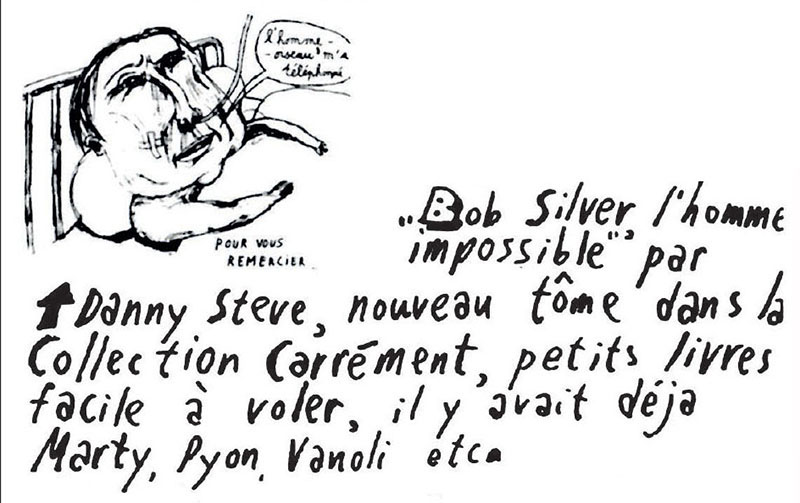 l'homme-
-oiseau m'a
téléphoné
POUR VOUS
REMERCIER.
„Bob Silver, l'homme
impossible", par
Danny Steve, nouveau tôme dans la
Collection Carrément, petits livres
facile à voler, il y avait déja
Marty, Pyon, Vanoli etc.